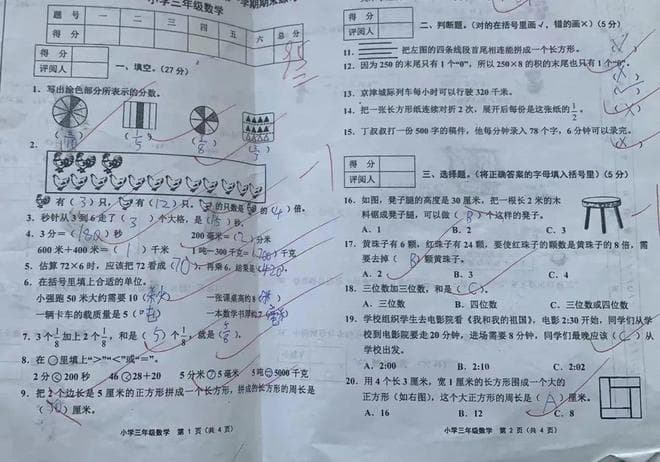 小学三年级数学
题 号 一 二 三 四 五 六 总 分
得 分
95
得 分
评阅人
一、填空。(27分)
1. 写出涂色部分所表示的分数。
( 1/5 ) ( 1/8 )
2.
有( 3 )只，有( 12 )只。的只数是的( 4 )倍。
3. 秒针从3到6走了( 3 )个大格，是( 15 )秒。
4. 3分=( 180 )秒 200毫米=( 2 )分米
600千克+400千克=( 1 )吨
5. 估算72×6时，应该把72看成( 70 )，再乘6，结果是( 420 )。
6. 在括号里填上合适的单位。
小强跑50米大约需要10( 秒 ) 一张课桌高约8( )
一辆卡车的载质量是5( 吨 )
7. 3个1/8加上2个1/8，和是( 5 )个1/8，就是( 5/8 )。
8. 在○里填上“>”“<”或“=”。
2分<200秒 46<28+20 5分米>5毫米 5吨=5000千克
9. 把2个边长是5厘米的正方形拼成一个长方形，拼成的长方形的周长是
( 30 )厘米。
小学三年级数学 第1页(共4页)
得 分
评阅人
二、判断题。(对的在括号里画√，错的画×)(5分)
11. 把左图的四条线段首尾相连能拼成一个长方形。 ( × )
12. 因为250的末尾只有1个“0”，所以250×8的积的末尾也只有1个“0”。
( × )
13. 京津城际列车每小时可以行驶320千米。
14. 把一张长方形纸连续对折2次，展开后每份是这张纸的1/2。
15. 丁叔叔打一份500字的稿件，他每分钟录入78个字，6分钟可以录完。
得 分
评阅人
三、选择题。(将正确答案的字母填入括号里)(5分)
16. 如图，凳子腿的高度是30厘米，把一根长2米的木
料锯成凳子腿，可以做( B )个这样的凳子。
A. 1 B. 2 C. 3
17. 黄珠子有6颗，红珠子有24颗，要使红珠子的颗数是黄珠子的8倍，需
要去掉( B )颗黄珠子。
A. 2 B. 3 C. 4
18. 三位数加三位数，和是( C )。
A. 三位数 B. 四位数 C. 三位数或四位数
19. 学校组织学生去电影院看《我和我的祖国》，电影2:30开始，同学们从学
校到电影院要走20分钟，进场需要8分钟，同学们最晚应该( C )从
学校出发。
A. 2:00 B. 2:10 C. 2:02
20. 用4个长3厘米，宽1厘米的长方形围成一个大的
正方形(如右图)，这个大正方形的周长是( A )厘米。
A. 16 B. 12 C. 8
小学三年级数学 第2页(共4页)